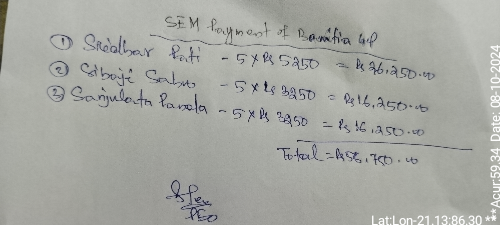 SEM Payment of Banitia GP
① Sridhar Pati - 5 x Rs 5250 = Rs 26,250.00
② Sibaji Sahu - 5 x Rs 3250 = Rs 16,250.00
③ Sanjulata Panda - 5 x Rs 3250 = Rs 16,250.00
Total = Rs 58,750.00
PEO
Lat:Lon-21.13:86.30 **Acur:59.34 Date: 08-10-2024